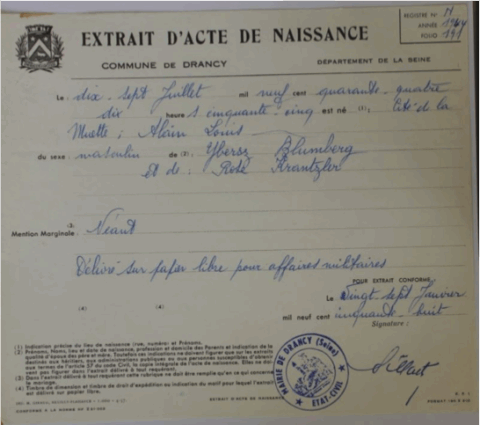 REGISTRE N° N
ANNÉES 1944
FOLIO 141
EXTRAIT D'ACTE DE NAISSANCE
COMMUNE DE DRANCY
DÉPARTEMENT DE LA SEINE
Le dix-sept Juillet mil neuf cent quarante-quatre
dix heures cinquante-cinq est né (1) Cité de la
Muette : Alain Louis
du sexe masculin de (2) Ybersz Blumberg
Et de : Rose Krantzler
Mention Marginale (3) Néant
Délivré sur papier libre pour affaires militaires
POUR EXTRAIT CONFORME
(4) (4) Le Vingt sept Janvier
mil neuf cent cinquante-huit
Signature :
(1) Indication précise du lieu de naissance (rue, numéro) et Prénoms.
(2) Prénoms, Noms, Lieu et date de naissance, profession et domicile des Parents et indication de la
qualité d'époux des père et mère. Toutefois ces indications ne doivent figurer que sur les extraits
destinés aux héritiers, aux administrations publiques ou aux personnes susceptibles d'obtenir
aux termes de l'article 57 du code Civil, la copie intégrale de l'acte de naissance. Elles ne doi-
vent pas figurer dans l'extrait délivré à tout requérant.
(3) Dans l'extrait délivré à tout requérant cette rubrique ne doit être remplie qu'en ce qui concerne
le mariage.
(4) Timbre de dimension et timbre de droit d'expédition ou indication du motif pour lequel l'extrait
est délivré sur papier libre.
MAIRIE DE DRANCY (Seine)
ETAT-CIVIL
EXTRAIT D'ACTE DE NAISSANCE